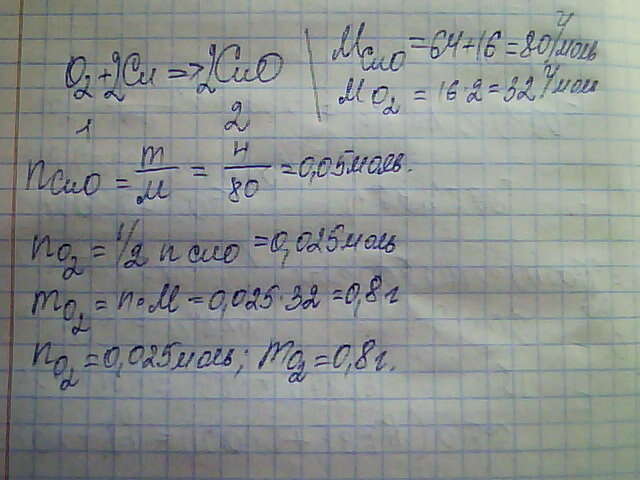 O₂+2Cu=>2CuO
M CuO = 64+16=80г/моль
M O₂ = 16·2=32 г/моль
1 2
n CuO = m/M = 4/80 =0,05моль.
n O₂ = 1/2 n CuO =0,025моль
m O₂ = n•M=0,025·32=0,8г
n O₂ =0,025моль; m O₂ =0,8г.